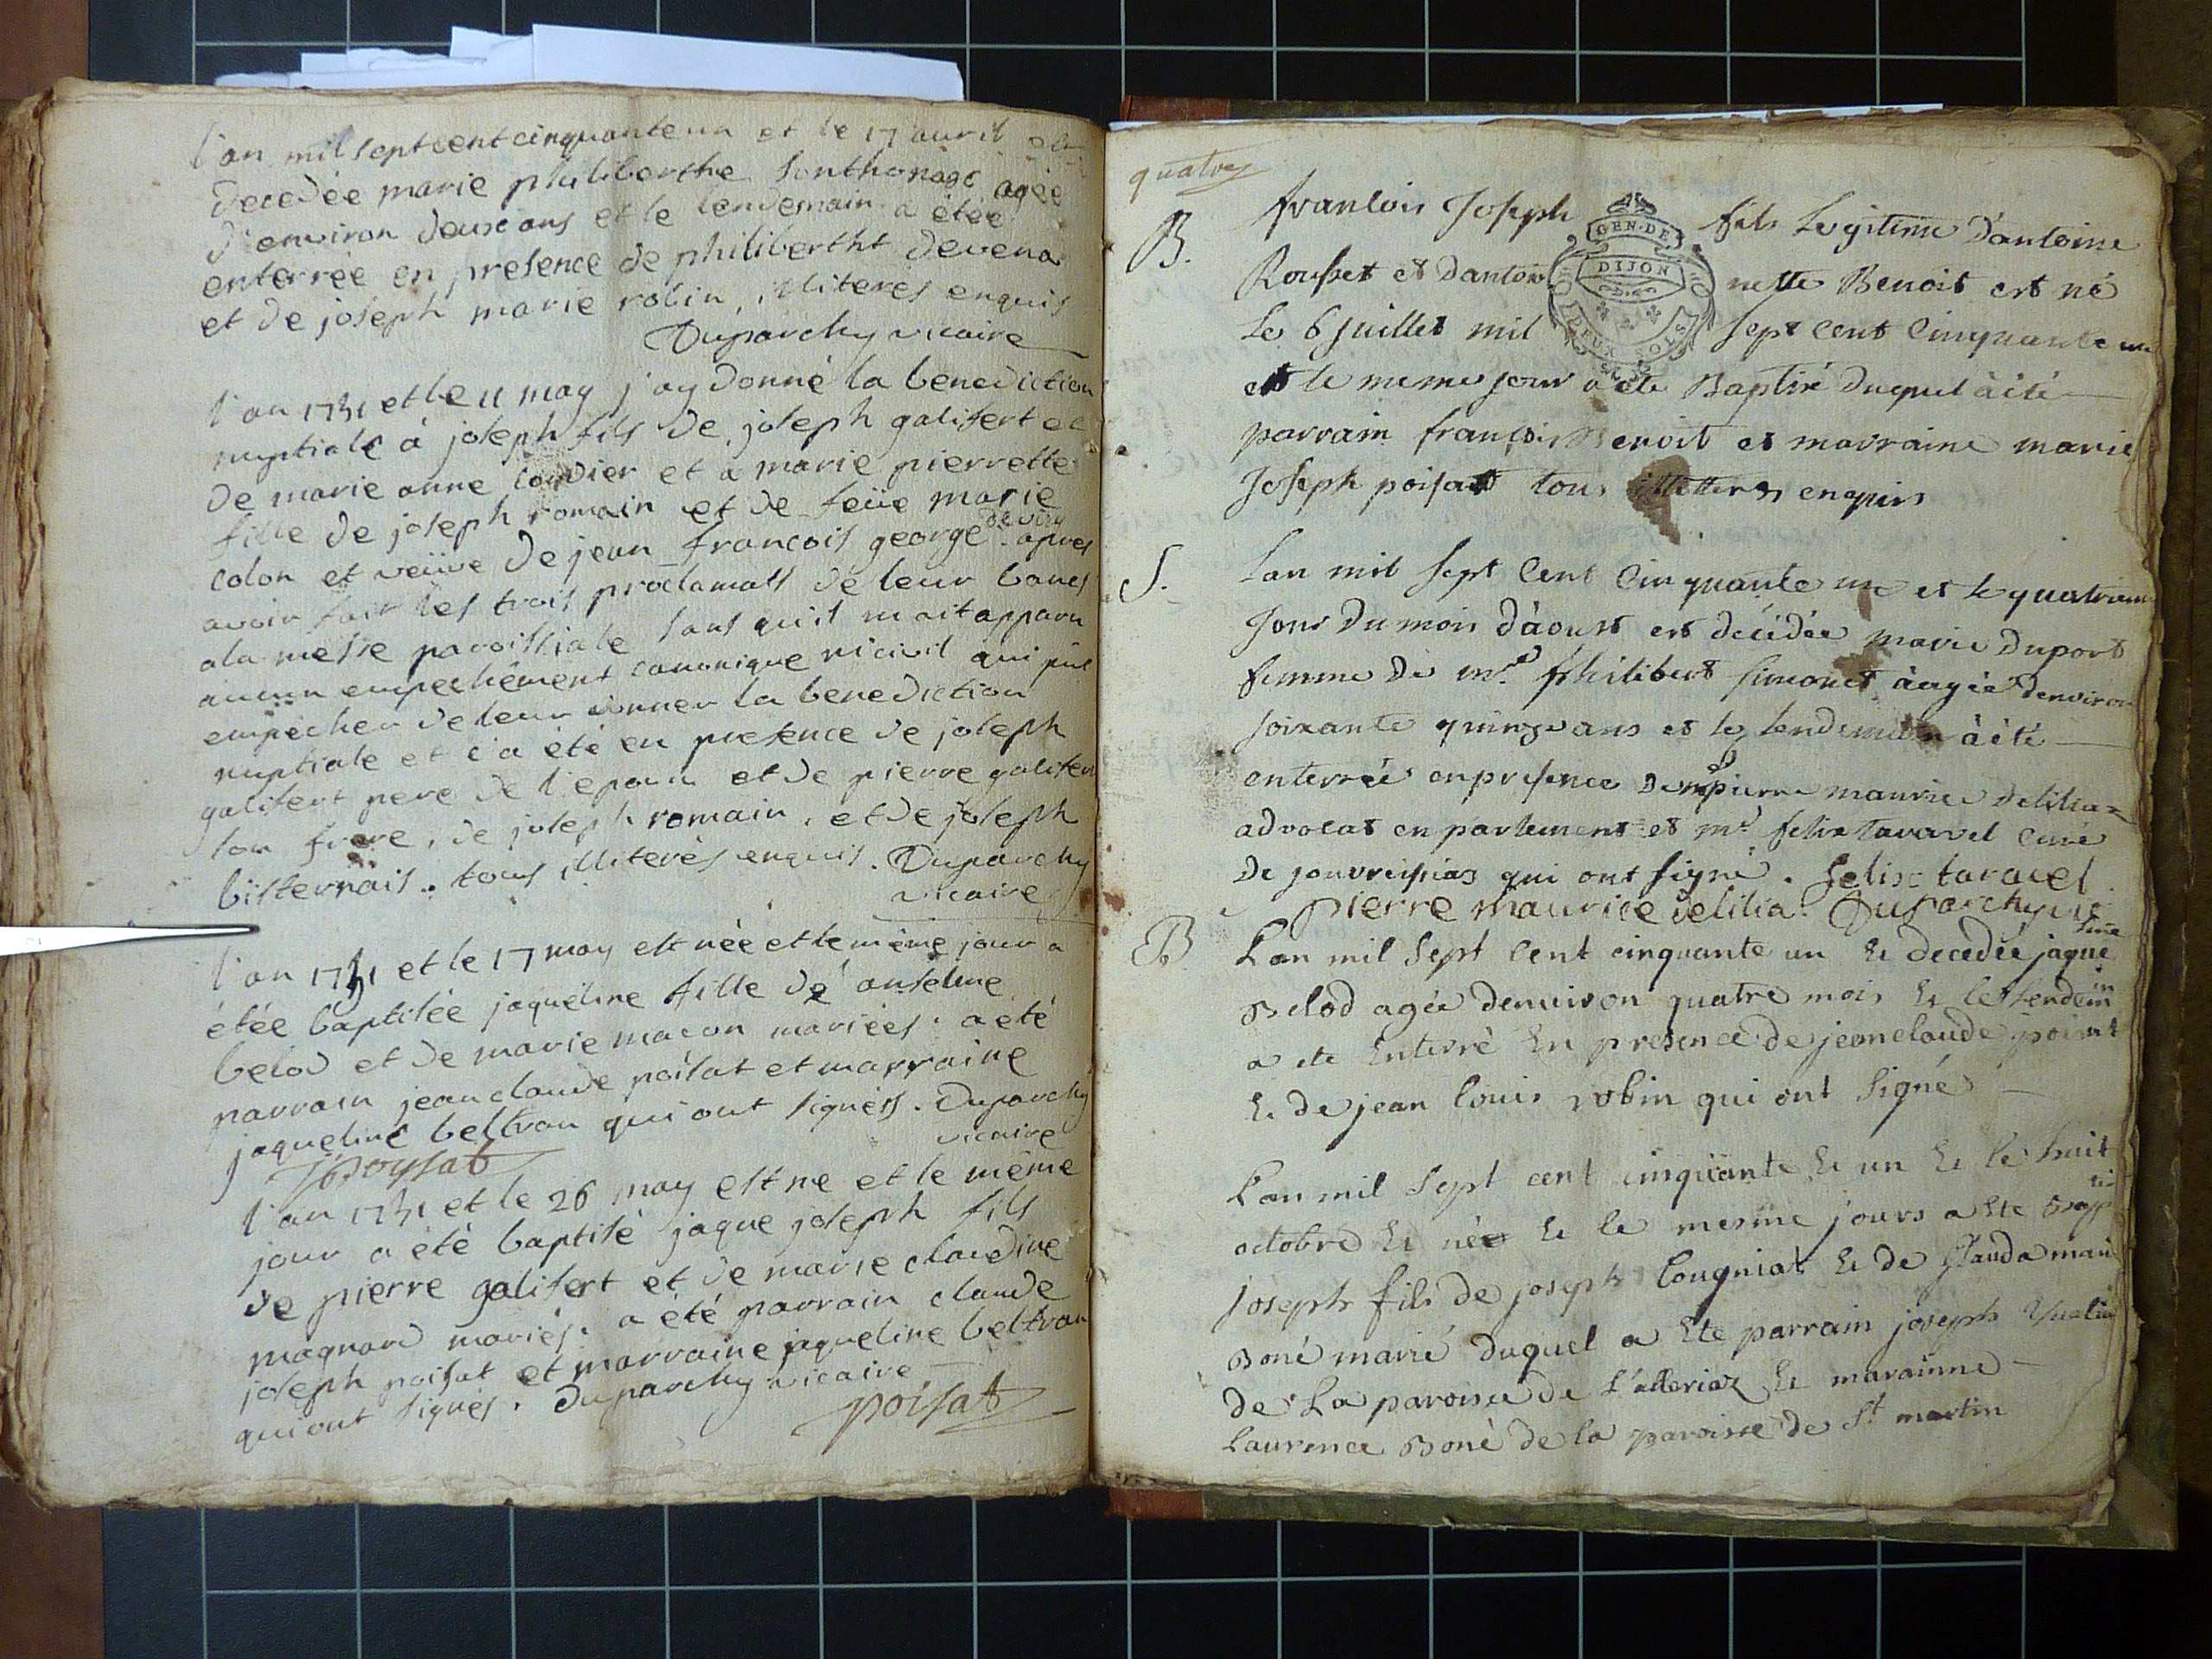 l'an mil septcentcinquanteun et le 17 avril est
decedée marie philiberthe Sonthonage agée
d'environ deux ans et le lendemain a étée
enterrée en presence de philiberthe
et de joseph marie robin, illiterés enquis
Duparchy vicaire
l'an 1751 et le 11 may j'ay donné la benediction
nuptiale á joseph fils de joseph galifert et
de marie anne et a marie pierrette
fille de joseph romain et de feüe marie
colon et veüve de jean francois george apres
avoir fait les trois proclamats de leur bancs
ala messe paroissiale sans qu'il m'ait apparu
aucun empechement canonique ni civil qui put
empecher de leur donner la benediction
nuptiale et c'a été en presence de joseph
galifert pere de l'epoux et de pierre galifert
son frere, de joseph romain, et de joseph
bisternais. tous illiterés enquis. Duparchy
vicaire
l'an 1751 et le 17 may est née et le même jour a
étée baptisée jaqueline fille de anselme
belod et de marie macon mariées. a été
parrain jean claude poisat et marraine
jaqueline beltran qui ont signés. Duparchy
vicaire
poysat
l'an 1751 et le 26 may est ne et le même
jour a été baptisé jaque joseph fils
de pierre galifert et de marie claudine
magnard mariés. a été parrain claude
joseph poisat et marraine jaqueline beltran
qui ont signés. Duparchy vicaire
poisat
quatre
GEN. DE
DIJON
DEUX SOLS
B. francois Joseph fils Legitime d'antoine
Rousset et d'antoinette Benoit est né
Le 6 juillet mil sept cent cinquante un
et le meme jour a été Baptisé duquel à été
parrain françois Benoit et marraine marie
Joseph poisat tous illetterés enquis
S. Lan mil sept cent cinquante un et le quatrieme
Jour du mois d'àoust est décédée marie Duport
femme de mr. philibert simonet àagée d'environ
soixante quinze ans et le lendemain à été
enterrée en presence de mr pierre maurice delilia
advocat en parlement et mr. felix taravel curé
de qui ont signé. felix taravel
pierre maurice delilia. Duparchy vic
B Lan mil sept cent cinquante un Et decedée jaqueline
Belod agée denuiron quatre mois Et le lendemin
a ete Enterré En presence de jean claude poisat
Et de jean louis robin qui ont signés
Lan mil sept cent cinquante Et un Et le huit
octobre Et née Et le mesme jours a Ete Bapti
joseph fils de joseph Cougniat Et de Clauda mari
Boné marié duquel a Ete parrain joseph
de La paroisse de Et marainne
Laurence Boné de la paroisse de St martin